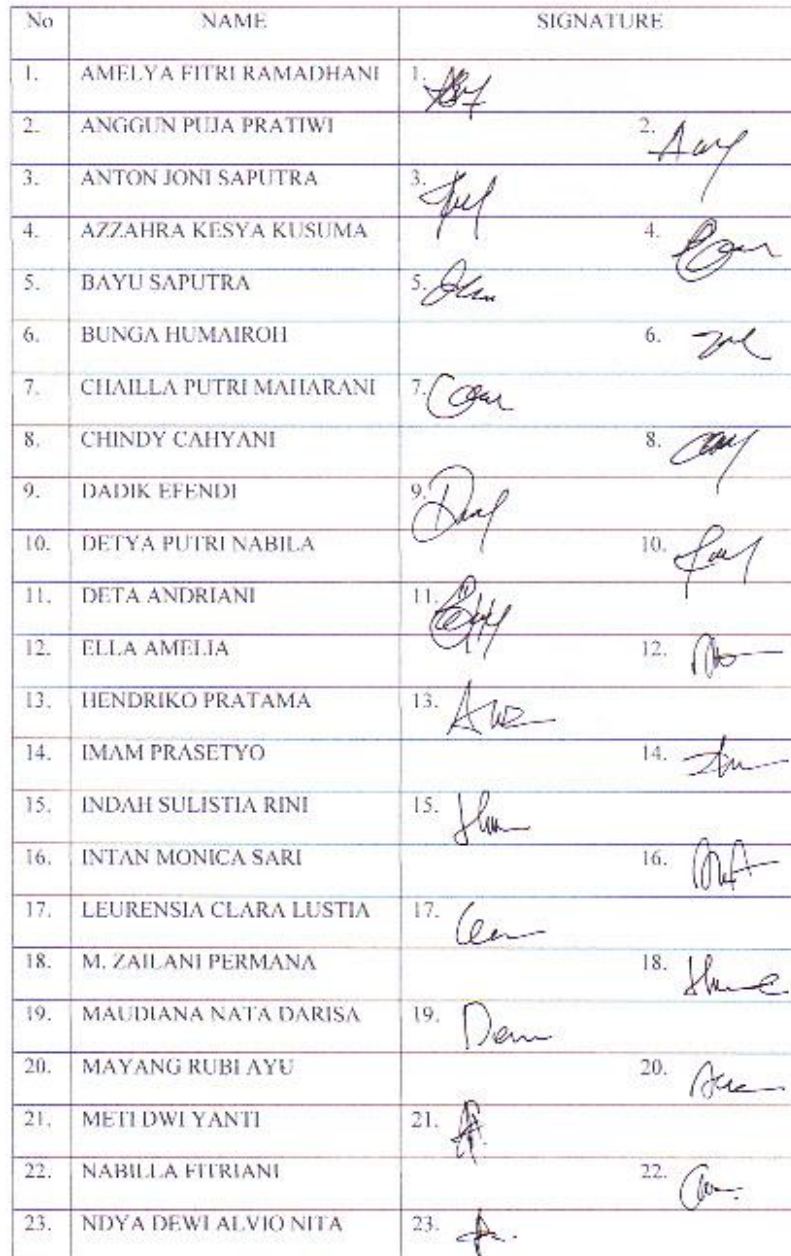 No NAME SIGNATURE
1. AMELYA FITRI RAMADHANI 1.
2. ANGGUN PUJA PRATIWI 2.
3. ANTON JONI SAPUTRA 3.
4. AZZAHRA KESYA KUSUMA 4.
5. BAYU SAPUTRA 5.
6. BUNGA HUMAIROH 6.
7. CHAILLA PUTRI MAHARANI 7.
8. CHINDY CAHYANI 8.
9. DADIK EFENDI 9.
10. DETYA PUTRI NABILA 10.
11. DETA ANDRIANI 11.
12. ELLA AMELIA 12.
13. HENDRIKO PRATAMA 13.
14. IMAM PRASETYO 14.
15. INDAH SULISTIA RINI 15.
16. INTAN MONICA SARI 16.
17. LEURENSIA CLARA LUSTIA 17.
18. M. ZAILANI PERMANA 18.
19. MAUDIANA NATA DARISA 19.
20. MAYANG RUBI AYU 20.
21. METI DWI YANTI 21.
22. NABILLA FITRIANI 22.
23. NDYA DEWI ALVIO NITA 23.